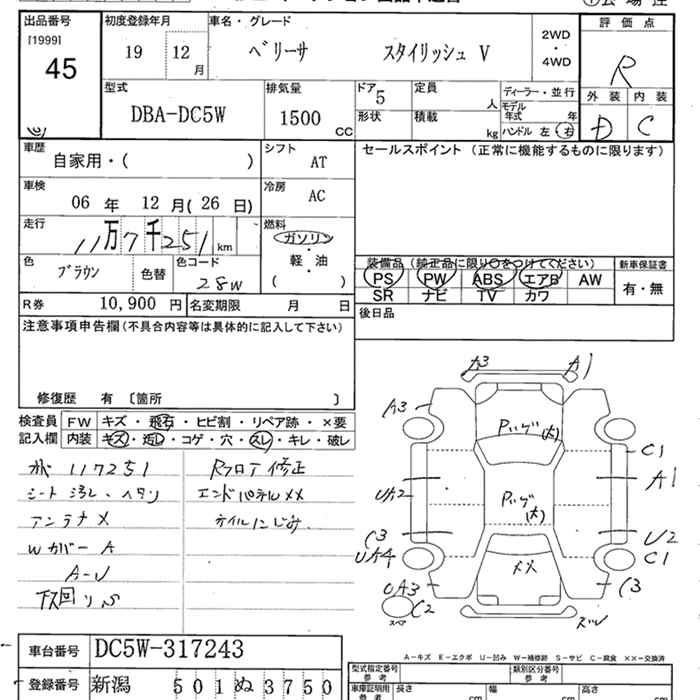 出品番号 初度登録年月 車名・グレード 評価点
[1999] 45 19 12月 ベリーサ スタイリッシュ V 2WD・4WD R
型式 排気量 ドア 定員 ディーラー・並行 外装 内装
DBA-DC5W 1500 CC 5 人 モデル年式 年 D C
形状 積載 kg ハンドル 左・右
車歴 自家用・( ) シフト AT セールスポイント (正常に機能するものに限ります)
車検 06年 12月(26日) 冷房 AC
走行 11万7千251km 燃料 ガソリン・軽・油・( )
色 ブラウン 色替 色コード 28W
装備品(純正品に限り○をつけてください) 新車保証書
PS PW ABS エアB AW 有・無
SR ナビ TV カワ
R券 10,900円 名変期限 月 日 後日品
注意事項申告欄(不具合内容等は具体的に記入して下さい)
修復歴 有 〔箇所 〕
検査員記入欄 FW キズ・飛石・ヒビ割・リペア跡・×要
内装 キズ・汚レ・コゲ・穴・スレ・キレ・破レ
117251 修正
シート汚レ、ヘタリ エンドパネルXX
アンテナX テイルにじみ
WカバーA
A-U
下回リS
A3 A1
A3 Pハゲ(大)
C1
UA2 Pハゲ(大) A1
C3 U2
UA4 XX C1
UA3 C3
C2
スペア
A-キズ E-エクボ U-凹み W-補修跡 S-サビ C-腐食 XX-交換済
車台番号 DC5W-317243
登録番号 新潟 501 ぬ 3750
型式指定番号 参考 類別区分番号 参考
車庫証明用 参考 長さ cm 幅 cm 高さ cm